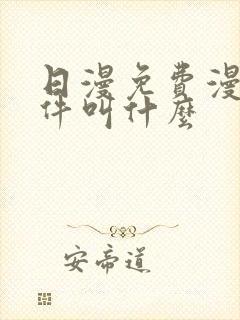 日漫免费漫
件叫什麽
安帝道